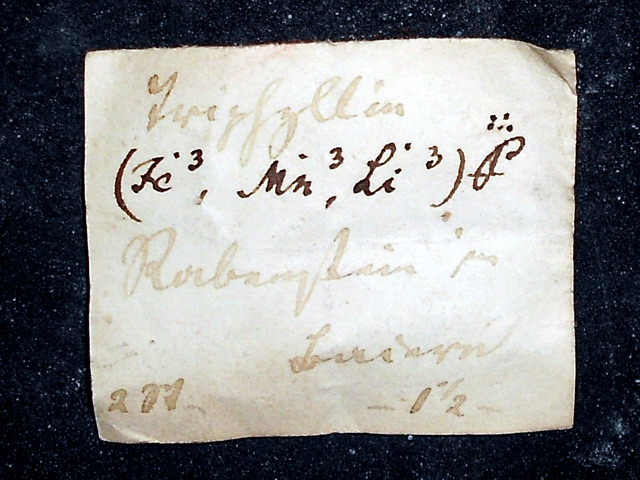 Triphyllin
(Fe³, Mn³, Li³) P
Rabenstein in
Baiern
– 1½ –